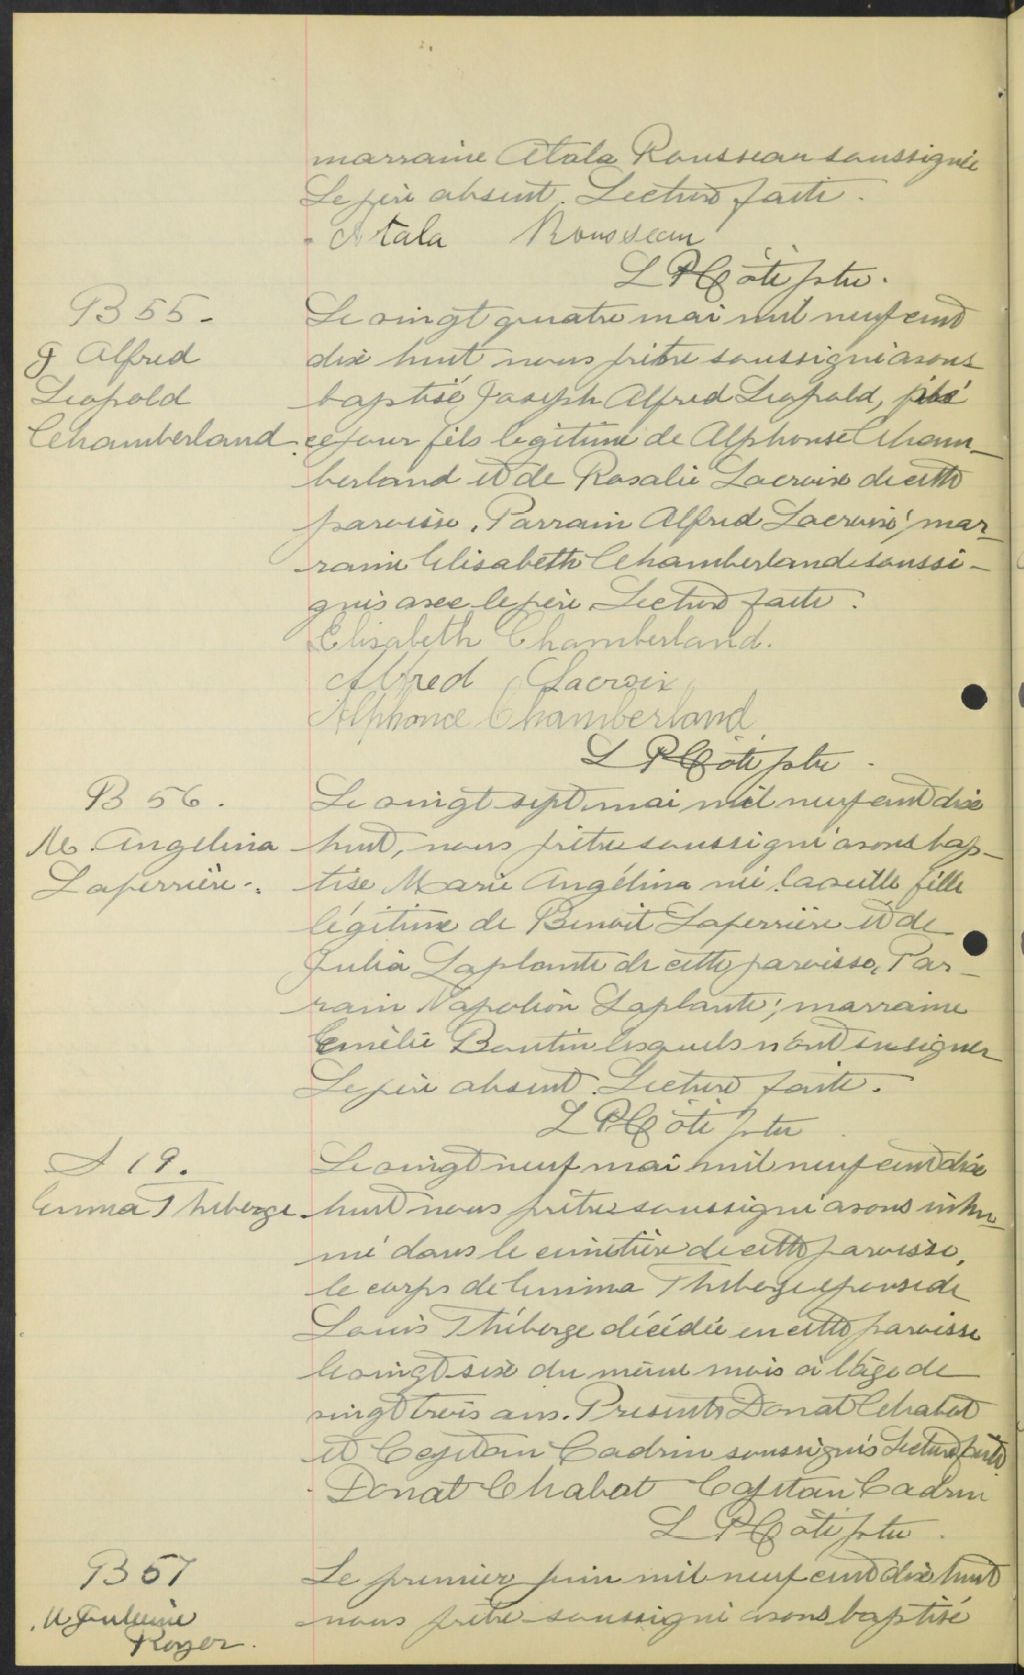 marraine Atala Rousseau soussignée
Le père absent. Lecture faite.
Atala Rousseau
L P Côté ptre.
B 55.
J Alfred
Leopold
Chamberland
Le vingt quatre mai mil neuf cent
dix huit nous prêtre soussigné avons
baptisé Joseph Alfred Leopold, né
ce jour fils légitime de Alphonse Cham-
berland et de Rosalie Lacroix de cette
paroisse. Parrain Alfred Lacroix; mar-
raine Elisabeth Chamberland soussi-
gnés avec le père Lecture faite.
Elisabeth Chamberland.
Alfred Lacroix
Alphonce Chamberland
L P Côté ptre.
B 56.
M. Angelina
Laferrière.
Le vingt sept mai mil neuf cent dix
huit, nous prêtre soussigné avons bap-
tisé Marie Angélina née la veille fille
légitime de Benoit Laferrière et de
Julia Laplante de cette paroisse, Par-
rain Napoléon Laplante; marraine
Emélie Boutin lesquels n'ont su signer
Le père absent. Lecture faite.
L P Côté ptre
S 19.
Emma Theberge
Le vingt neuf mai mil neuf cent dix
huit nous prêtre soussigné avons inhu-
mé dans le cimetière de cette paroisse,
le corps de Emma Theberge épouse de
Louis Théberge décédée en cette paroisse
le vingt six du même mois à l'âge de
vingt trois ans. Présents Donat Chabot
et Cajetan Cadrin soussignés Lecture faite
Donat Chabot Cajetan Cadrin
L P Côté ptre.
B 57
M
Royer.
Le premier juin mil neuf cent dix huit
nous prêtre soussigné avons baptisé